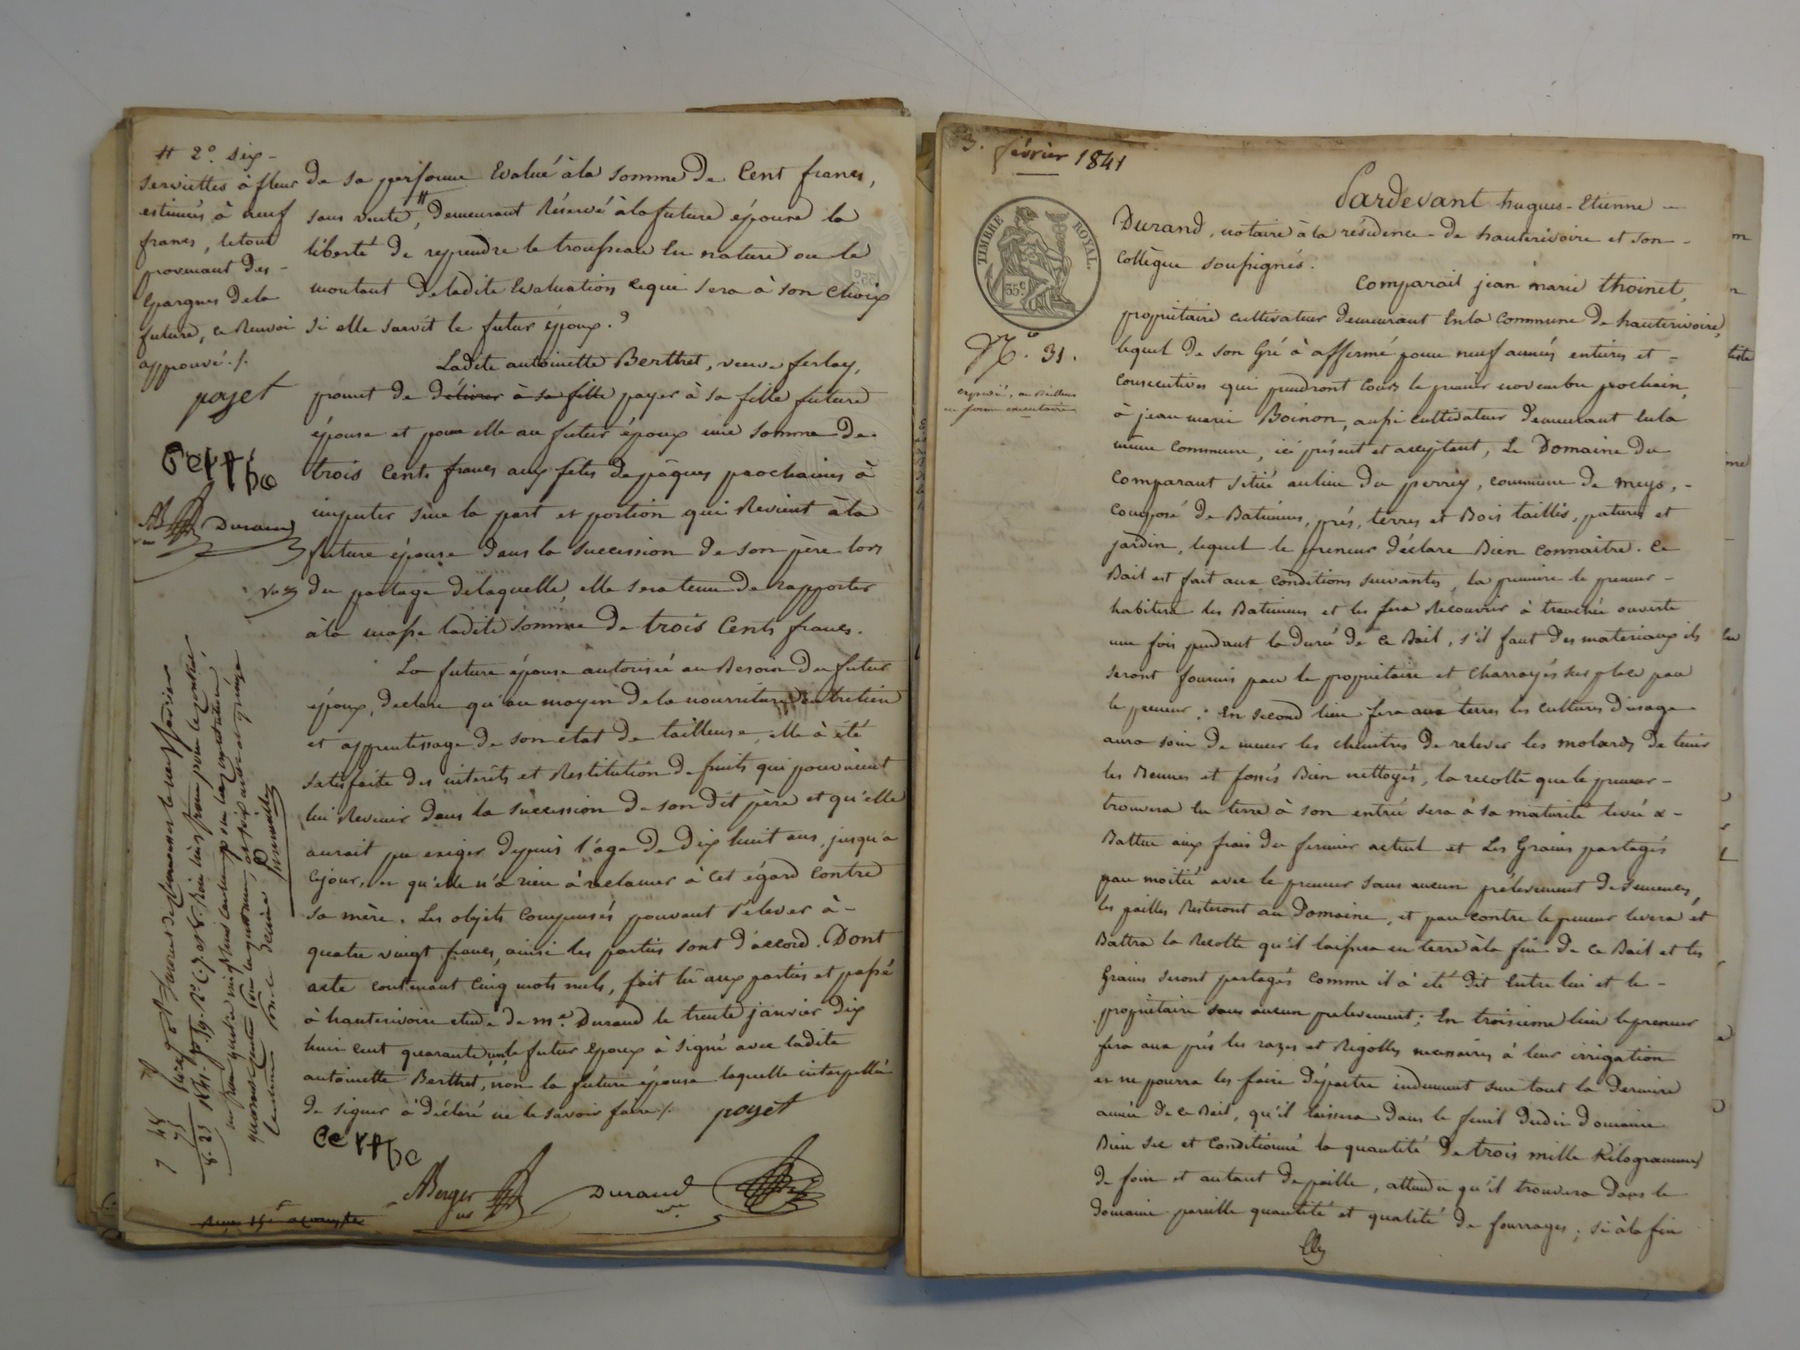 # 2° six
serviettes à fleur
estimés à neuf
francs, le tout
provenant des
Epargnes de la
future, ce Renvoi
approuvé ./.
poyet
Durand
de sa personne Evalué à la somme de Cent francs,
sans vente, # demeurant Réservé à la future épouse la
liberté de reprendre le trousseau En nature ou le
montant de ladite Evaluation ce qui sera à son choix
si elle survit le futur époux.
Ladite antoinette Berthet, veuve ferlay,
promet de délivrer à sa fille payer à sa fille future
épouse et pour elle au futur époux une somme de
trois Cents francs aux fêtes de pâques prochaines à
imputer sur la part et portion qui Revient à la
future épouse dans la succession de son père lors
du partage de laquelle, elle sera tenue de rapporter
à la masse ladite somme de trois Cents francs.
La future épouse autorisée au Besoin du futur
époux, déclare qu'au moyen de la nourriture, Entretien
et apprentissage de son état de tailleuse, elle à été
satisfaite des intérêts et Restitution de fruits qui pouvaient
lui Revenir dans la succession de son dit père et qu'elle
aurait pu exiger depuis l'âge de dix huit ans, jusqu'à
ce jour, qu'elle n'a rien à réclamer à cet égard contre
sa mère. Les objets Compensés pouvant s'élever à
quatre vingt francs, ainsi les parties sont d'accord. Dont
acte contenant Cinq mots nuls, fait lu aux parties et passé
à hauterivoire etude de me. Durand le trente janvier dix
huit cent quarante un, le futur époux à signé avec ladite
antoinette Berthet, non la future épouse laquelle interpellée
de signer à déclaré ne le savoir faire ./. poyet
Berger Durand
3. février 1841
TIMBRE ROYAL.
35c
N°. 31.
Pardevant hugues-Etienne
Durand, notaire à la résidence de hauterivoire et son
Collègue soussignés.
Comparait jean marie thoinet,
propriétaire cultivateur demeurant En la Commune de hauterivoire,
lequel de son Gré à affermé pour neuf années entières et
Consécutives qui prendront Cours le premier novembre prochain,
à jean marie Boinon, aussi cultivateur demeurant En la
même commune, ici présent et acceptant, Le Domaine du
Comparant situé au lieu du perrey, commune de meys,
Composé de Batimens, prés, terres et Bois taillis, patures et
jardin, lequel le preneur déclare Bien Connaître. Ce
Bail est fait aux Conditions suivantes, la première le preneur
habitera les Batimens et les fera Recouvrir à tranchée ouverte
une fois pendant la durée de ce Bail, s'il faut des materiaux ils
seront fournis par le propriétaire et Charroyés sur place par
le preneur; En second lieu fera aux terres les cultures d'usage
aura soin de mener les cheintres de relever les molards de tenir
les Bennes et fossés Bien nettoyés, la récolte que le preneur
trouvera En terre à son entrée sera à sa maturité levée &
Battue aux frais du fermier actuel et Les Grains partagés
par moitié avec le preneur sans aucun prélèvement de semences,
les pailles Resteront au Domaine, et par contre le preneur levera et
Battra la Récolte qu'il laissera en terre à la fin de ce Bail et les
Grains seront partagés comme il à été dit Entre lui et le
propriétaire sans aucun prélèvement; En troisième lieu le preneur
fera aux prés les razes et Rigolles nécessaires à leur irrigation
et ne pourra les faire dépaitre indument sur tout la dernière
année de ce Bail, qu'il laissera dans le fenil dudit Domaine
Bien sec et Conditionné la quantité de trois mille Kilogrammes
de foin et autant de paille, attendu qu'il trouvera dans le
domaine pareille quantité et qualité de fourrages; si à la fin